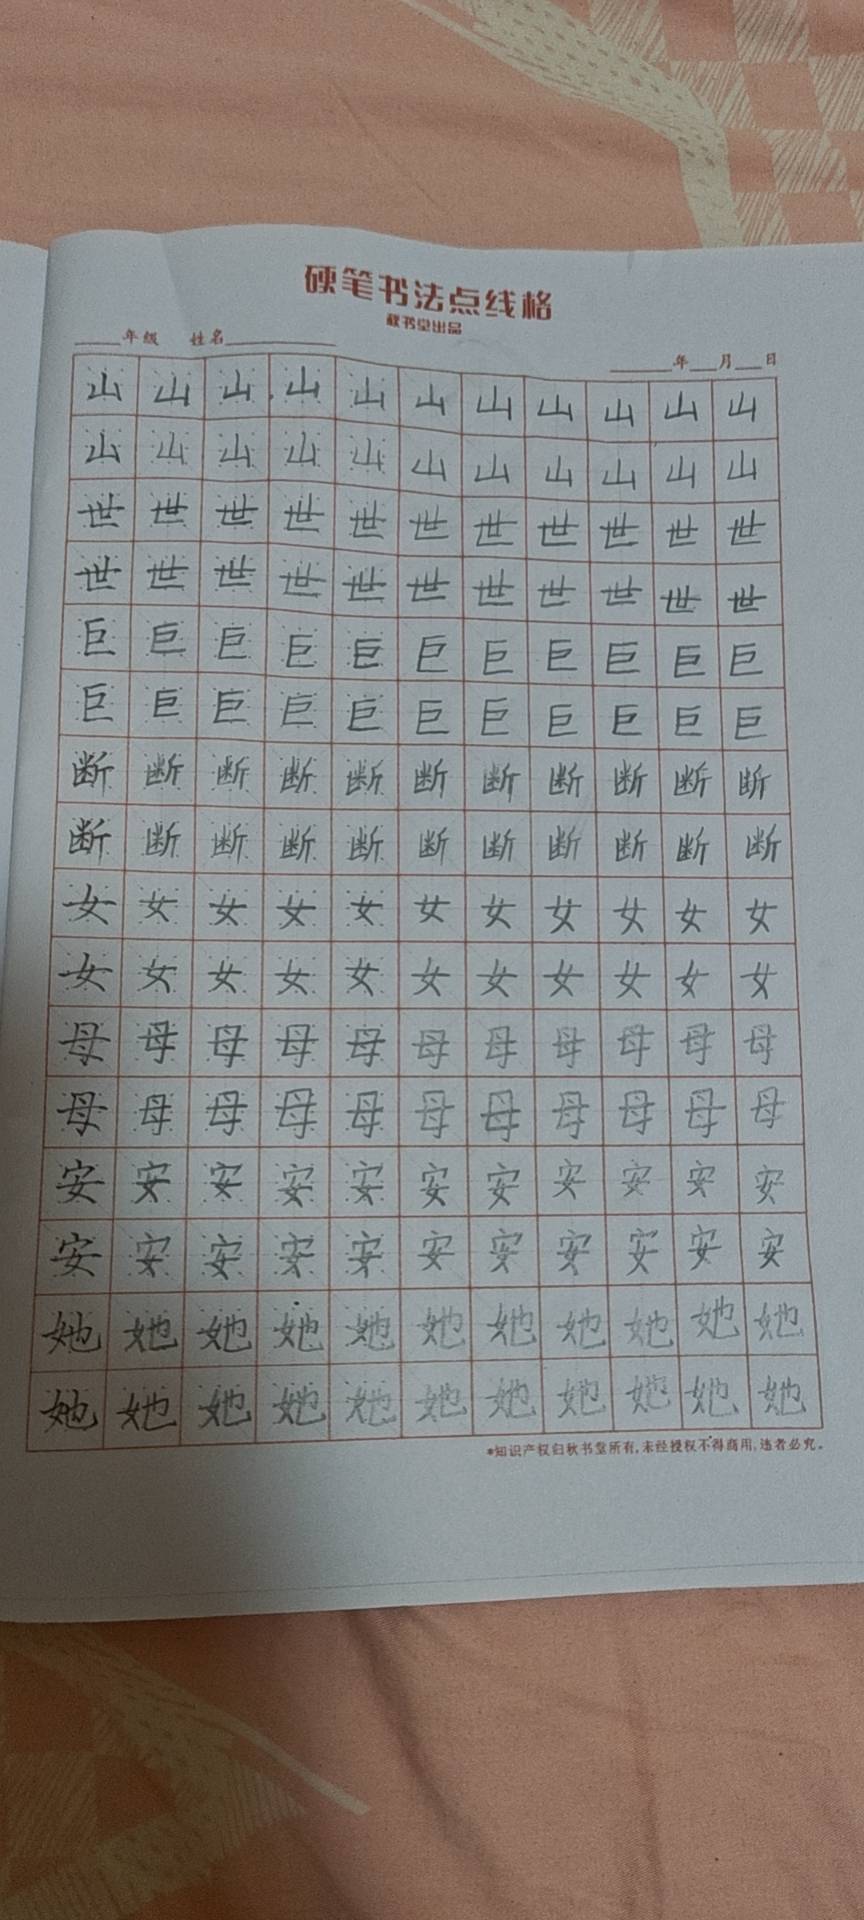 硬笔书法点线格
秋书堂出品
____年级 姓名____________
______年___月___日
山山山山山山山山山山山
山山山山山山山山山山山
世世世世世世世世世世世
世世世世世世世世世世世
巨巨巨巨巨巨巨巨巨巨巨
巨巨巨巨巨巨巨巨巨巨巨
断断断断断断断断断断断
断断断断断断断断断断断
女女女女女女女女女女女
女女女女女女女女女女女
母母母母母母母母母母母
母母母母母母母母母母母
安安安安安安安安安安安
安安安安安安安安安安安
她她她她她她她她她她她
她她她她她她她她她她她
*知识产权归秋书堂所有,未经授权不得商用,违者必究。